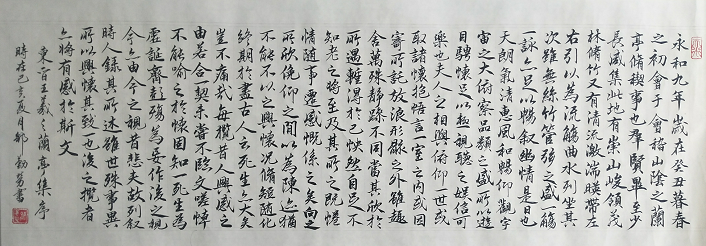 永和九年歲在癸丑暮春
之初會于會稽山陰之蘭
亭脩稧事也群賢畢至少
長咸集此地有崇山峻領茂
林脩竹又有清流激湍暎帶左
右引以為流觴曲水列坐其
次雖無絲竹管弦之盛一觴
一詠亦足以暢叙幽情是日也
天朗氣清惠風和暢仰觀宇
宙之大俯察品類之盛所以遊
目騁懷足以極視聽之娛信可
樂也夫人之相與俯仰一世或
取諸懷抱悟言一室之內或因
寄所託放浪形骸之外雖趣
舍萬殊靜躁不同當其欣於
所遇暫得於己怏然自足不
知老之將至及其所之既惓
情隨事遷感慨係之矣向之
所欣俛仰之間以為陳迹猶
不能不以之興懷況脩短隨化
終期於盡古人云死生亦大矣
豈不痛哉每攬昔人興感之
由若合一契未嘗不臨文嗟悼
不能喻之於懷固知一死生為
虛誕齊彭殤為妄作後之視
今亦由今之視昔悲夫故列叙
時人錄其所述雖世殊事異
所以興懷其致一也後之攬者
亦將有感於斯文
東晉王羲之蘭亭集序
時在己亥夏月